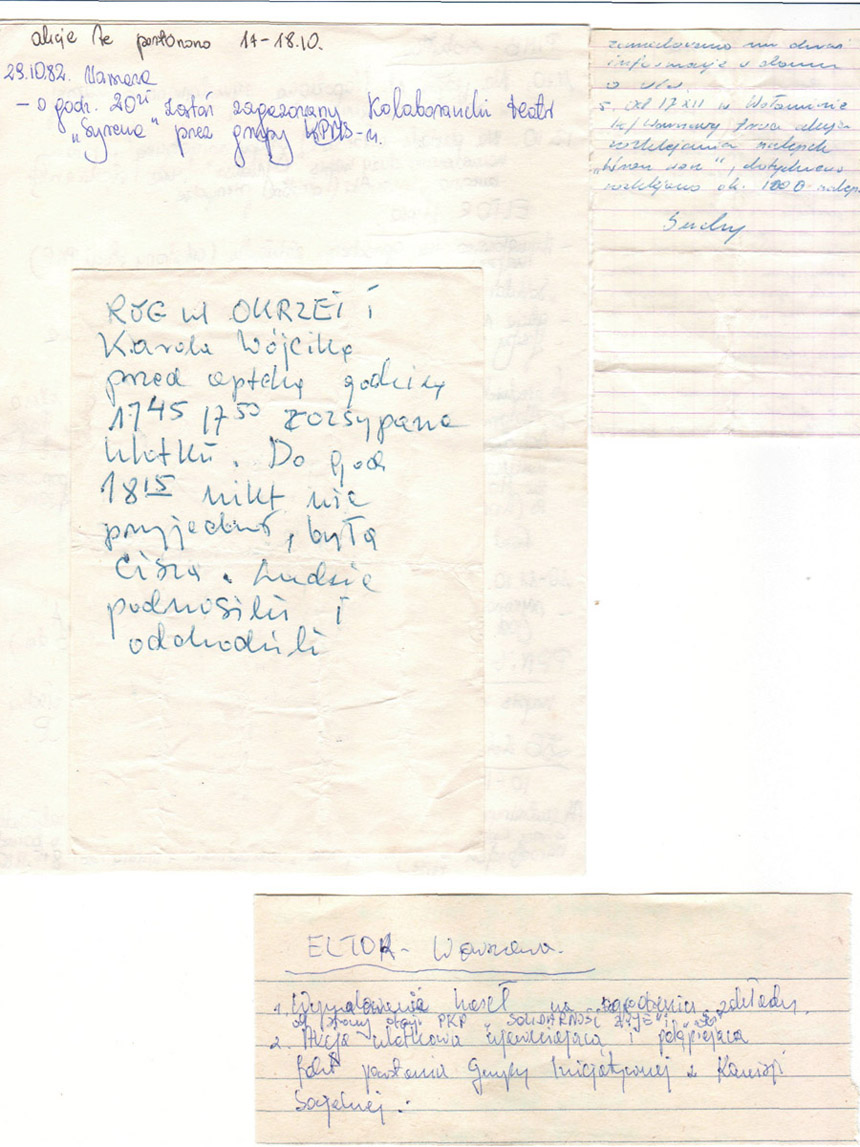 akcję tę ponowiono 17-18.10.
29.10.82. Warszawa
– o godz. 20 został zagazowany kolaborancki teatr
„Syrena” przez grupy
na drzwi
informacje o
o
5. Od 17 XII w Wołominie
k/Warszawy trwa akcja
rozklejania nalepek
„Wron won”, dotychczas
rozklejono ok. 1000 nalep.
Suchy
RÓG ul OKRZEI i
Karola Wójcika
przed apteką godzina
17 45 17 50 rozsypano
ulotki. Do god
18 15 nikt nie
przyjechał, była
cisza. Ludzie
podnosili i
odchodzili
ELTOR - Warszawa.
1. Wymalowanie haseł na ogrodzeniu zakładu.
od strony stacji PKP „SOLIDARNOŚĆ ŻYJE” i
2. Akcja ulotkowa ujawniająca i potępiająca
fakt powstania Grupy Inicjatywnej z Komisji
Socjalnej.